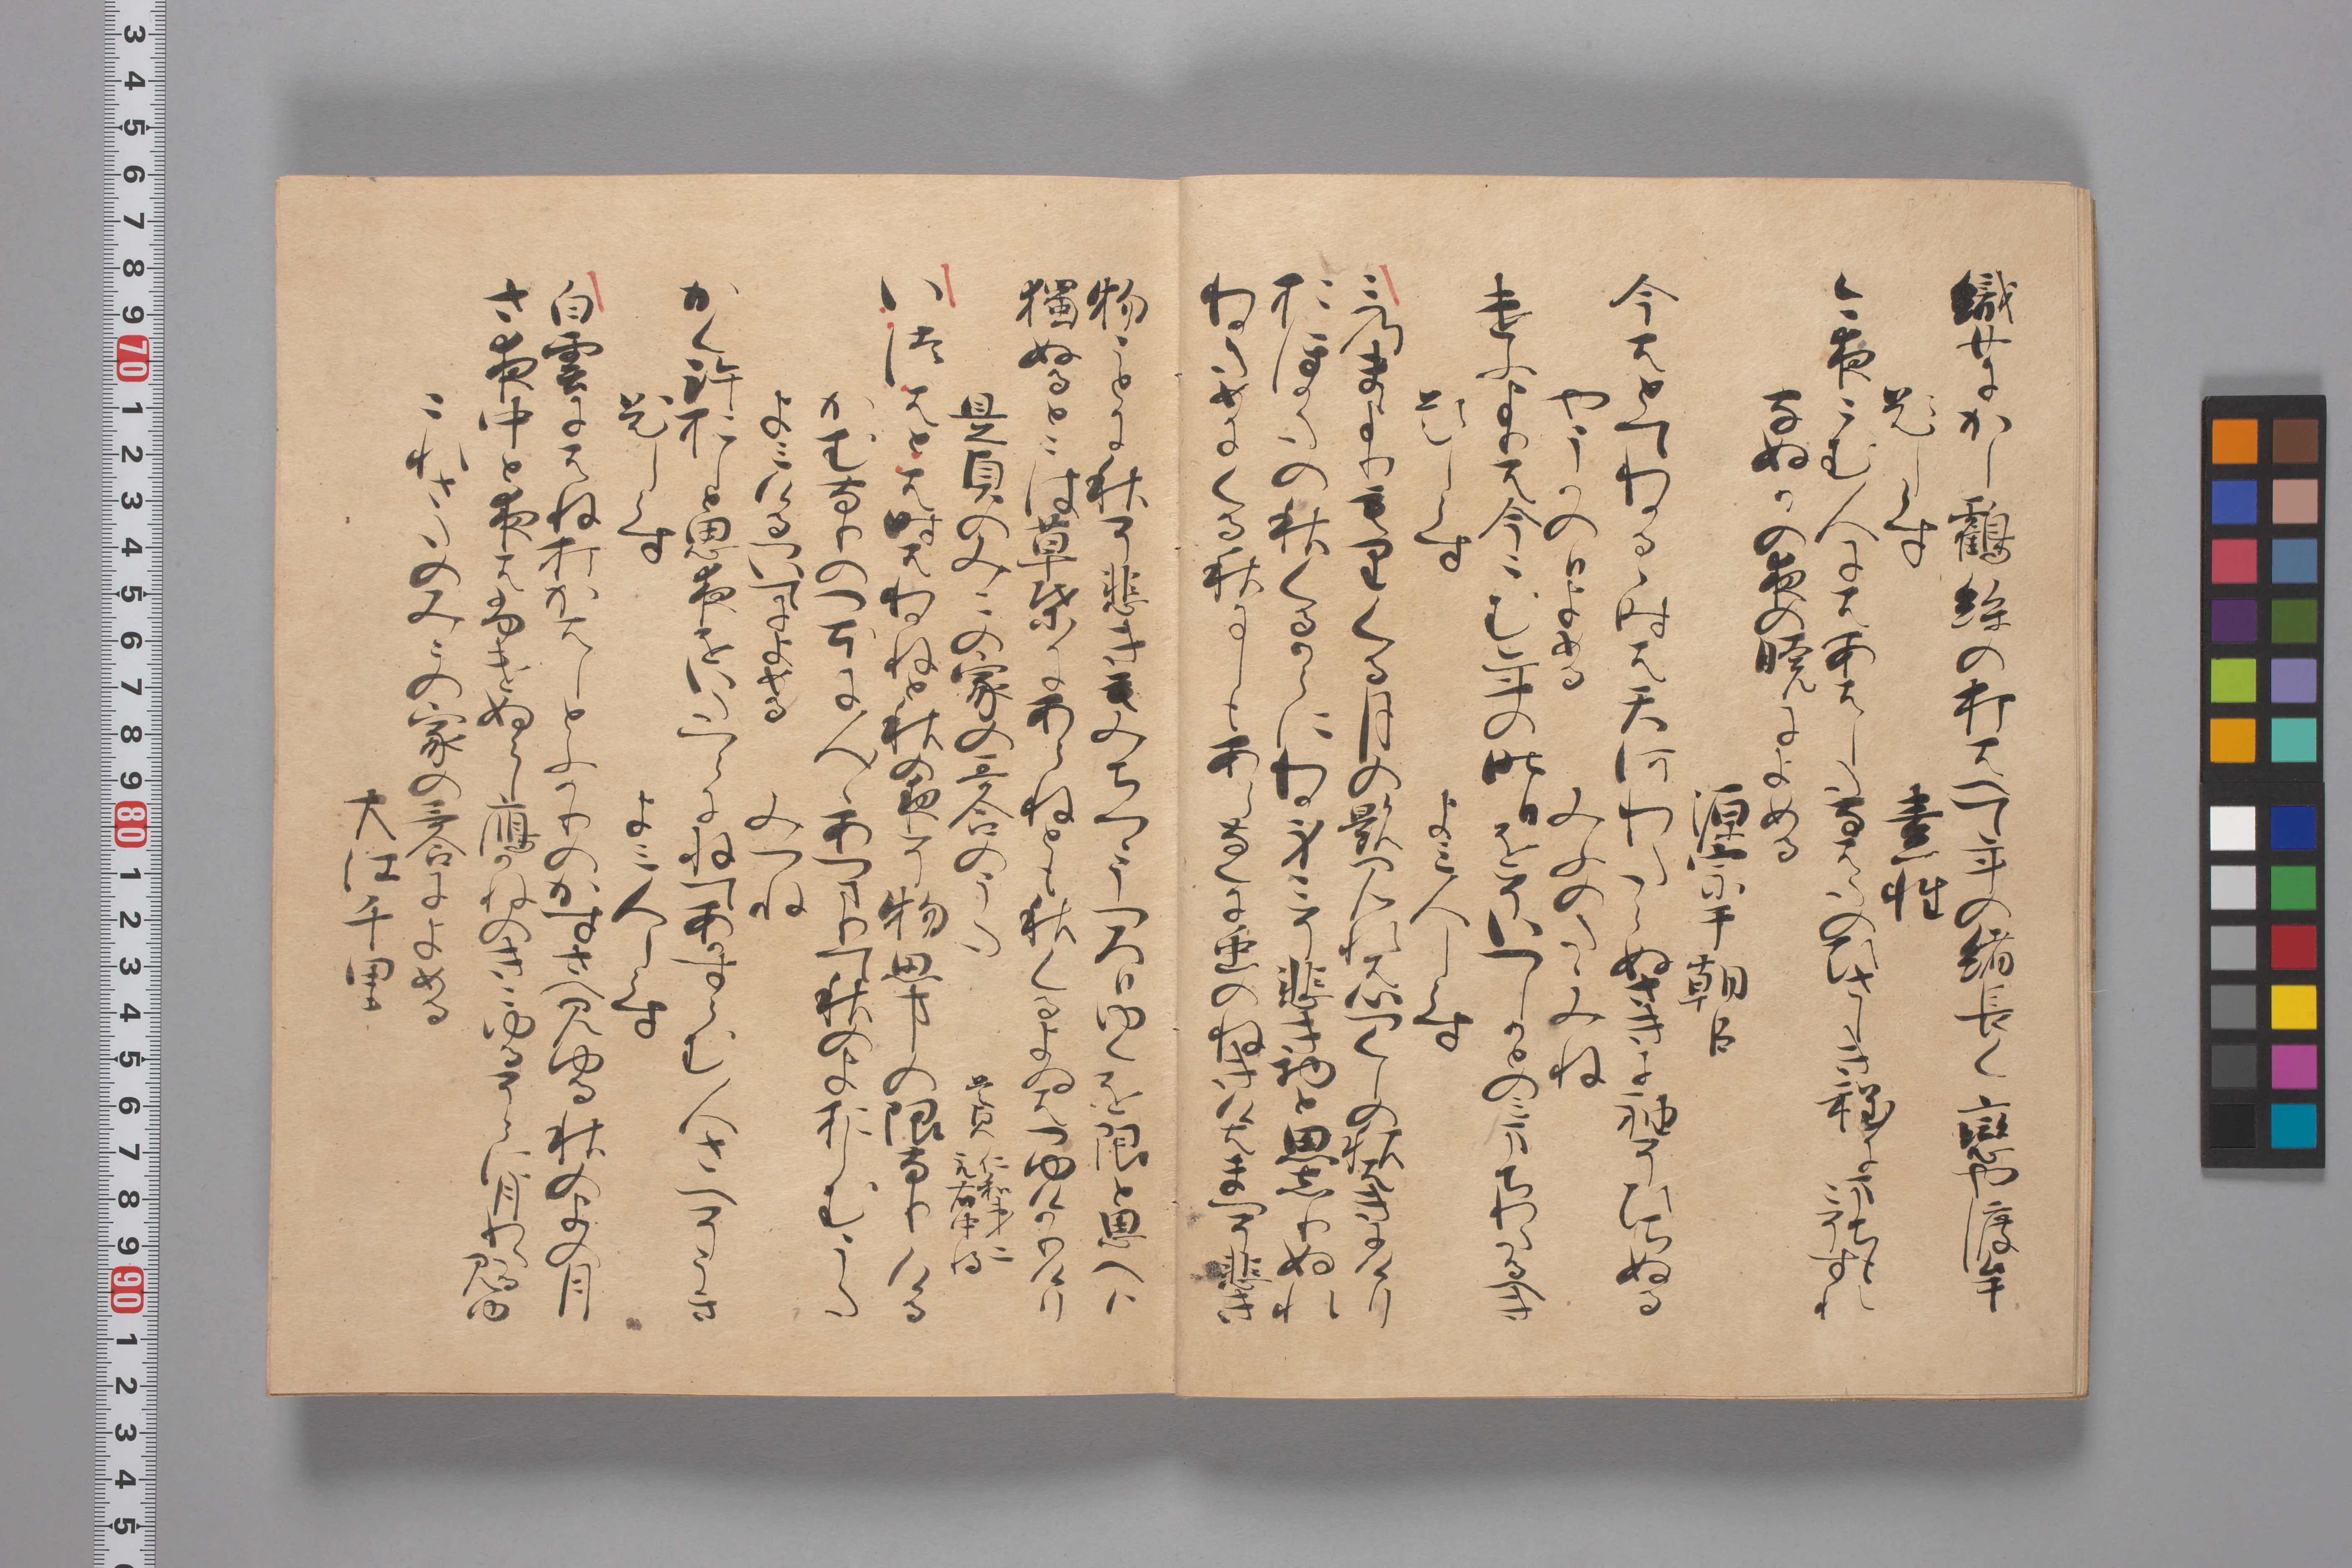 織女にかしつる絲の打はへて年の緒長く戀や渡らん
題しらす　素性
こ夜こむ人にはあはし七夕のひさしき程にまちもこそすれ
なぬかの夜の暁によめる
源宗于朝臣
今はとてわかるゝ時は天河わたらぬさきに袖そひちぬる
やうかの日よめる　みふのたゝみね
けふよりは今こむ年の昨日をそいつしかとのみまちわたるへき
題しらす　よみ人しらす
このまよりもりくる月の影見れは心つくしの秋はきにけり
おほかたの秋くるからにわか身こそ悲き物と思しりぬれ
わかためにくる秋にしもあらなくに虫の音きけはまつそ悲き
物ことに秋そ悲きもみちつゝうつろひゆくを限と思へは
獨ぬるとこは草葉にあらねとも秋くるよひはつゆけかりけり
是貞のみこの家の哥合のうた
いつはとは時はわかねと秋の夜そ物思事の限なりける
かむなりのつほに人々あつまりて秋のよおしむ
うたよみけるついてによめる　みつね
かく許おしと思夜をいたつらにねてあかすらむ人さへそうき
題しらす　よみ人しらす
白雲にはね打かはしとふかりのかすさへ見ゆる秋のよの月
さ夜中と夜はふけぬらし雁かねのきこゆるそらに月わたる見ゆ
これさたのみこの家の哥合によめる
大江千里